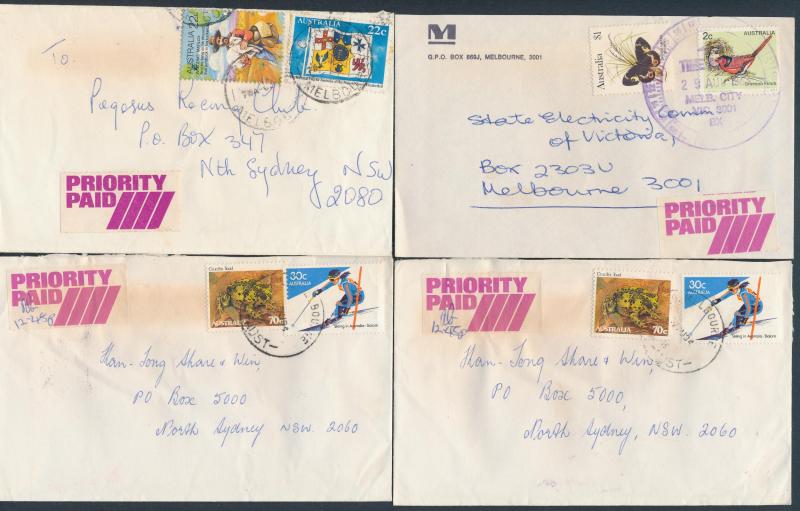 To
Pegasus Racing Club
P.O. Box 347
Nth Sydney NSW
2080
PRIORITY
PAID
AUSTRALIA
AUSTRALIA
22c
MELBOURNE
M
G.P.O. BOX 669J, MELBOURNE, 3001
Australia $1
2c
AUSTRALIA
Crimson Finch
MELB. CITY
VIC 3001
EX
State Electricity Comm
of Victoria,
Box 2303U
Melbourne 3001
PRIORITY
PAID
PRIORITY
PAID
12-45p
Corella Toad
AUSTRALIA
70c
30c
Skiing in Australia - Slalom
Han-Tong Share & Win,
PO Box 5000
North Sydney NSW. 2060
PRIORITY
PAID
12-45p
AUSTRALIA
70c
30c
Skiing in Australia - Slalom
Han-Tong Share & Win,
PO Box 5000,
North Sydney, NSW. 2060